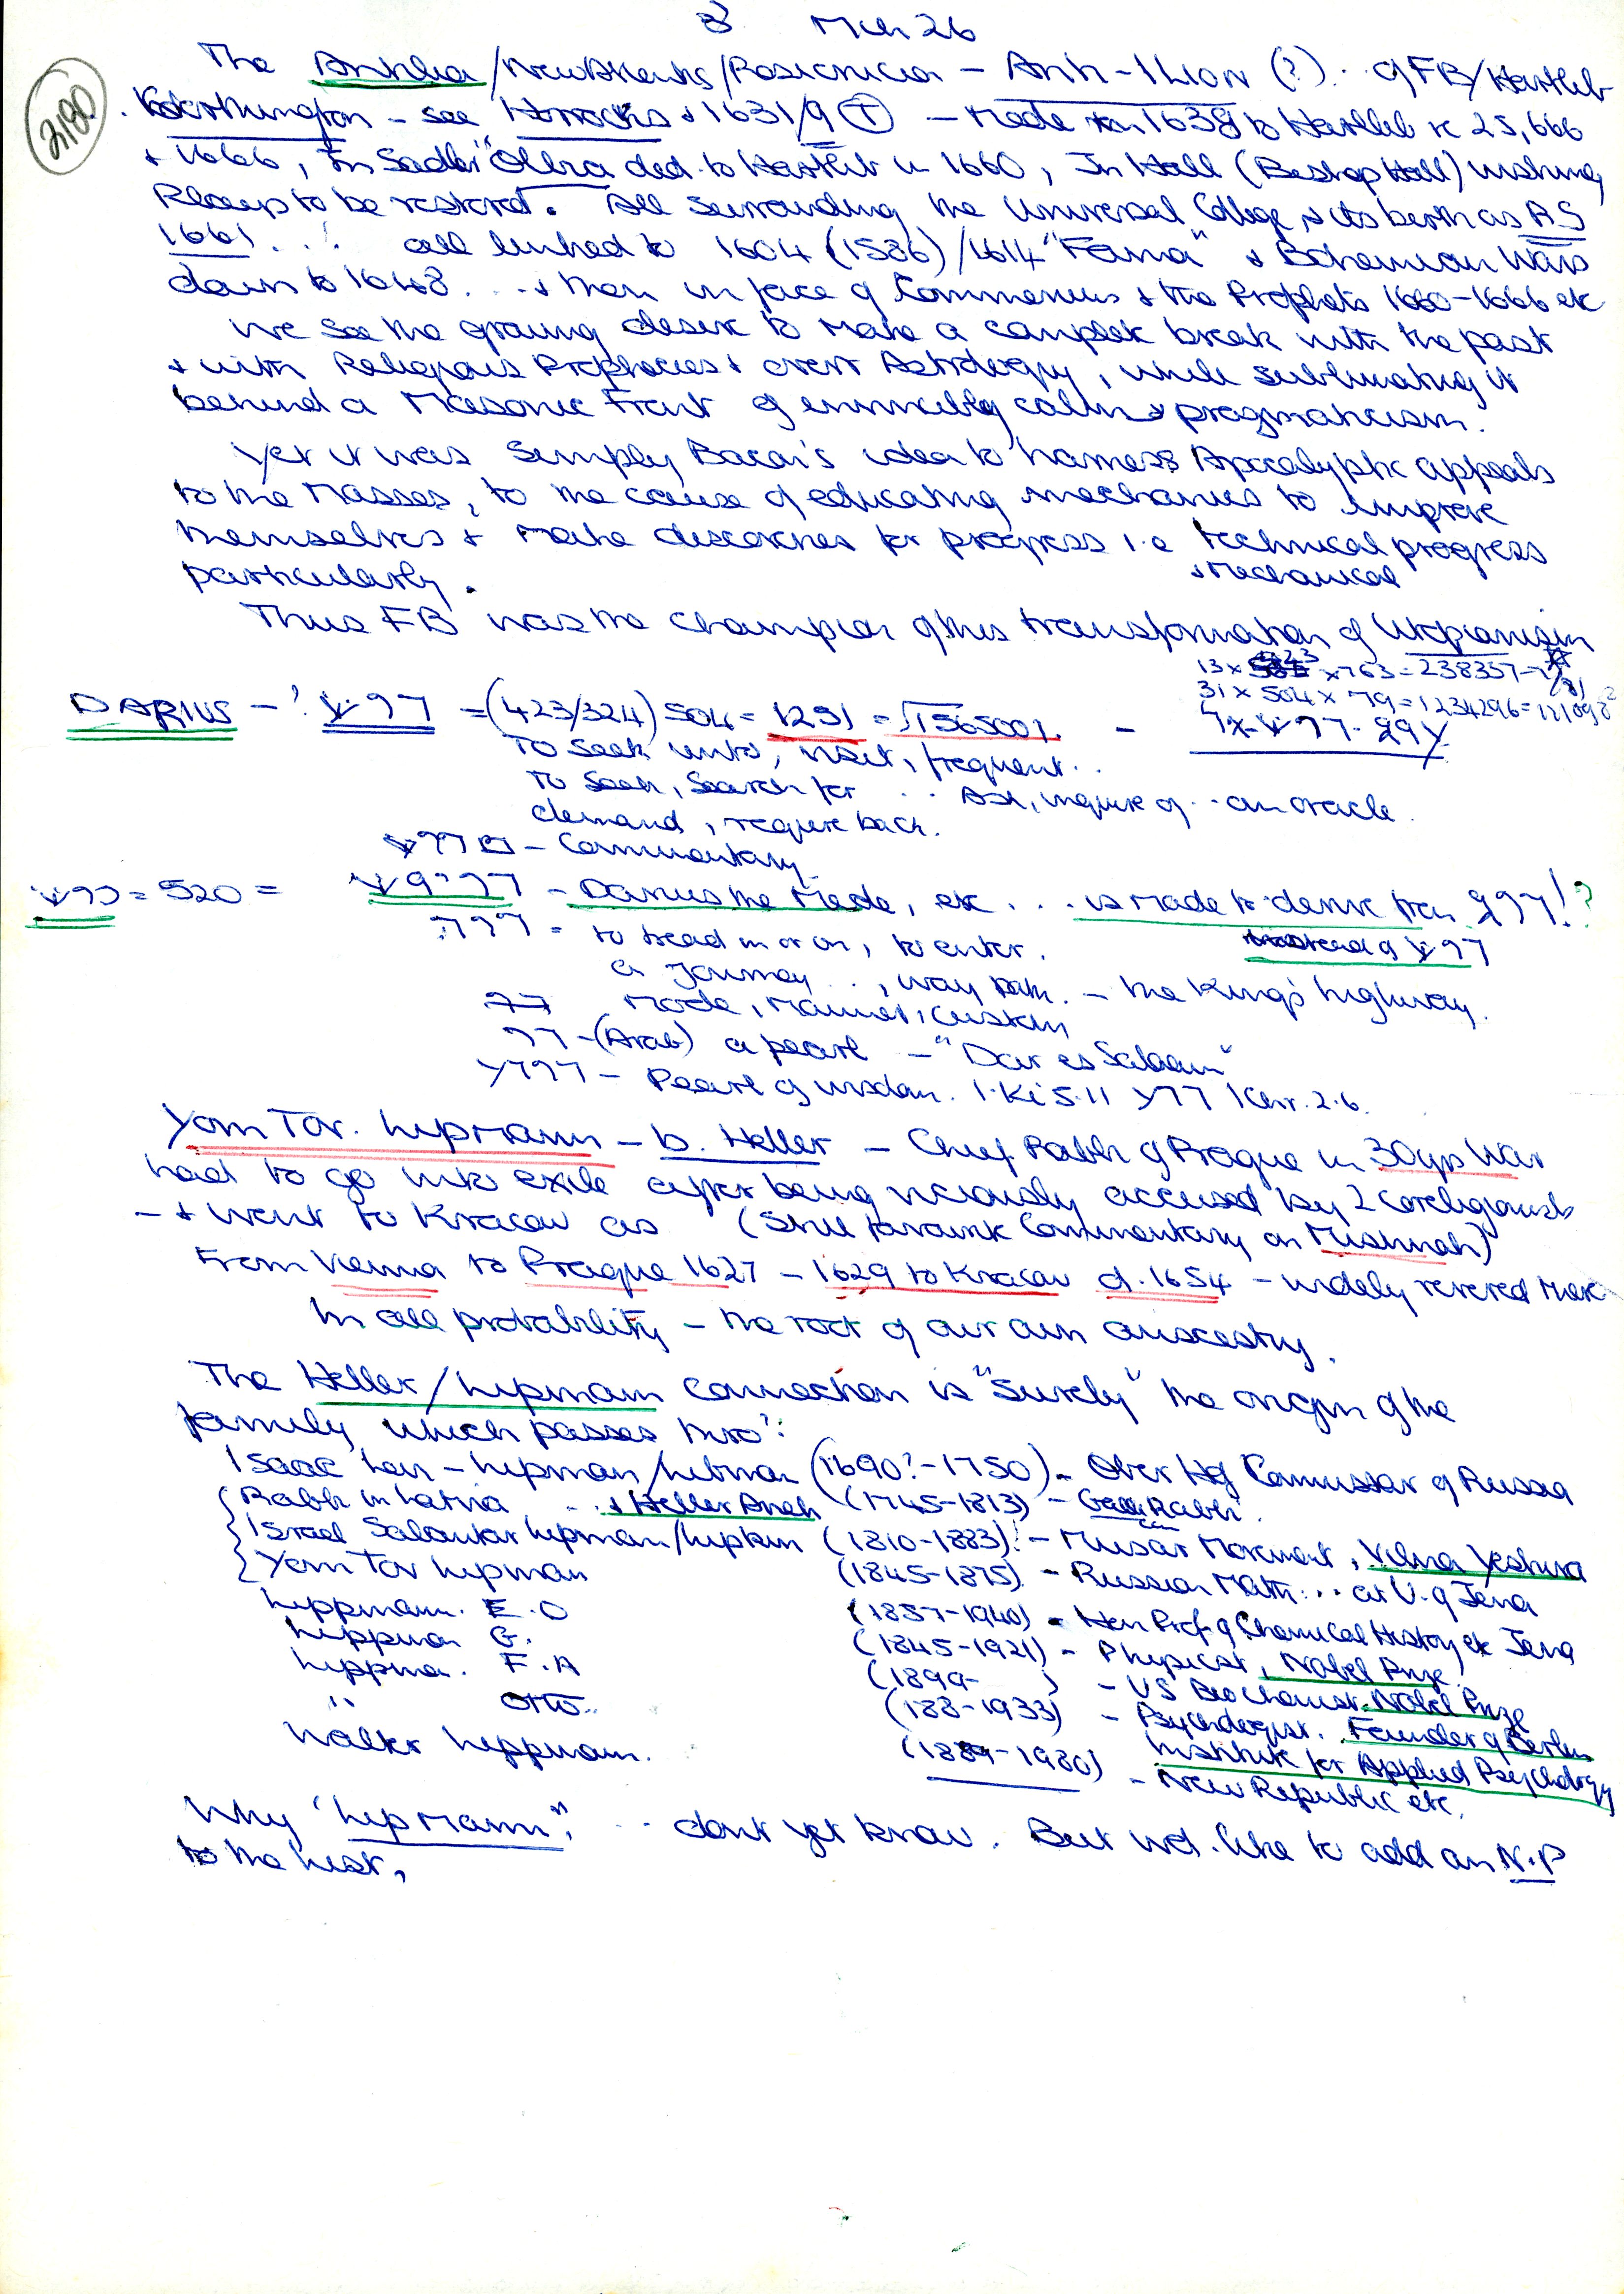 3 Mch 26
3,180
The Antilia / New Atlantis / Rosicrucian – Anti-Ilion (?) . of FB / Hartlib
. – see Horrocks & 1631/9 (T) – Mede 1638 to Hartlib re 25,666
& 1666, Jn Sadler "Olbia ded. to Hartlib in 1660, Jn Hall (Bishop Hall) wishing
to be restored. All surrounding the Universal College, & its birth as RS
1661 . . . all linked to 1604 (1586) / 1614 "Fama" & Bohemian Wars
down to 1648 . . . & then in face of Commenius & the Prophets 1660-1666 etc
We see the growing desire to make a complete break with the past
& with Religious Prophecies & overt Astrology, while sublimating it
behind a Masonic Front of calm & pragmaticism.
Yet it was simply Bacon's idea to harness Apocalyptic appeals
to the Masses, to the cause of educating mechanics to improve
themselves & make discoveries for progress i.e technical progress
particularly. & Mechanical
Thus FB was the champion of this transformation of Utopianism
13 x 763 = 238357
31 x 504 x 79 = 1234296
DARIUS – ? דרש = (423/324) 504 = 1251 = √1565001. –
To seek unto, visit, frequent . .
To seek, search for . . Ask, inquire of . . an oracle.
demand, require back.
– Commentary
= 520 = דריוש – Darius the Mede, etc . . . is made to derive from !?
instead of דרש
דרך = to tread in or on, to enter.
a Journey . . , way path. – the King's highway.
Mode, Manner, Custom
דר – (Arab) a pearl – "Dar es Salaam"
דרדע – Pearl of wisdom. 1.Ki 5.11 דרע 1 Chr. 2.6.
Yom Tov. Lipmann – b. Heller – Chief Rabbi of Prague in 30 yrs War
had to go into exile after being viciously accused by 2 Coreligionists
– & went to Kracow as (Still favourite Commentary on Mishnah)
From Vienna to Prague 1627 – 1629 to Kracow d. 1654 – widely revered there
In all probability – the root of our own ancestry.
The Heller / Lipmann connection is "surely" the origin of the
family, which passes thro':
Isaac Lev – Lipman / Libman (1690?-1750) – Ober Hof Commissar of Russia
Rabbi in Latvia . . & Heller Aryeh (1745-1813) – Rabbi.
Israel Salantar Lipman/Lipkin (1810-1883) – Musar Movement, Vilna Yeshiva
Yom Tov Lipman (1845-1875) – Russian Math . . . at U. of Jena
Lippmann. E. O (1857-1940) – Hon Prof of Chemical History etc Jena
Lippman G. (1845-1921) – Physicist, Nobel Prize
Lippman. F. A (1899- ) – US Biochemist. Nobel Prize
" Otto. (188-1933) – Psychologist. Founder of Berlin
Institute for Applied Psychology
Walter Lippmann. (1889-1980) – New Republic etc.
Why "Lipmann", . . dont yet know. But wd. like to add an N.P
to the list.